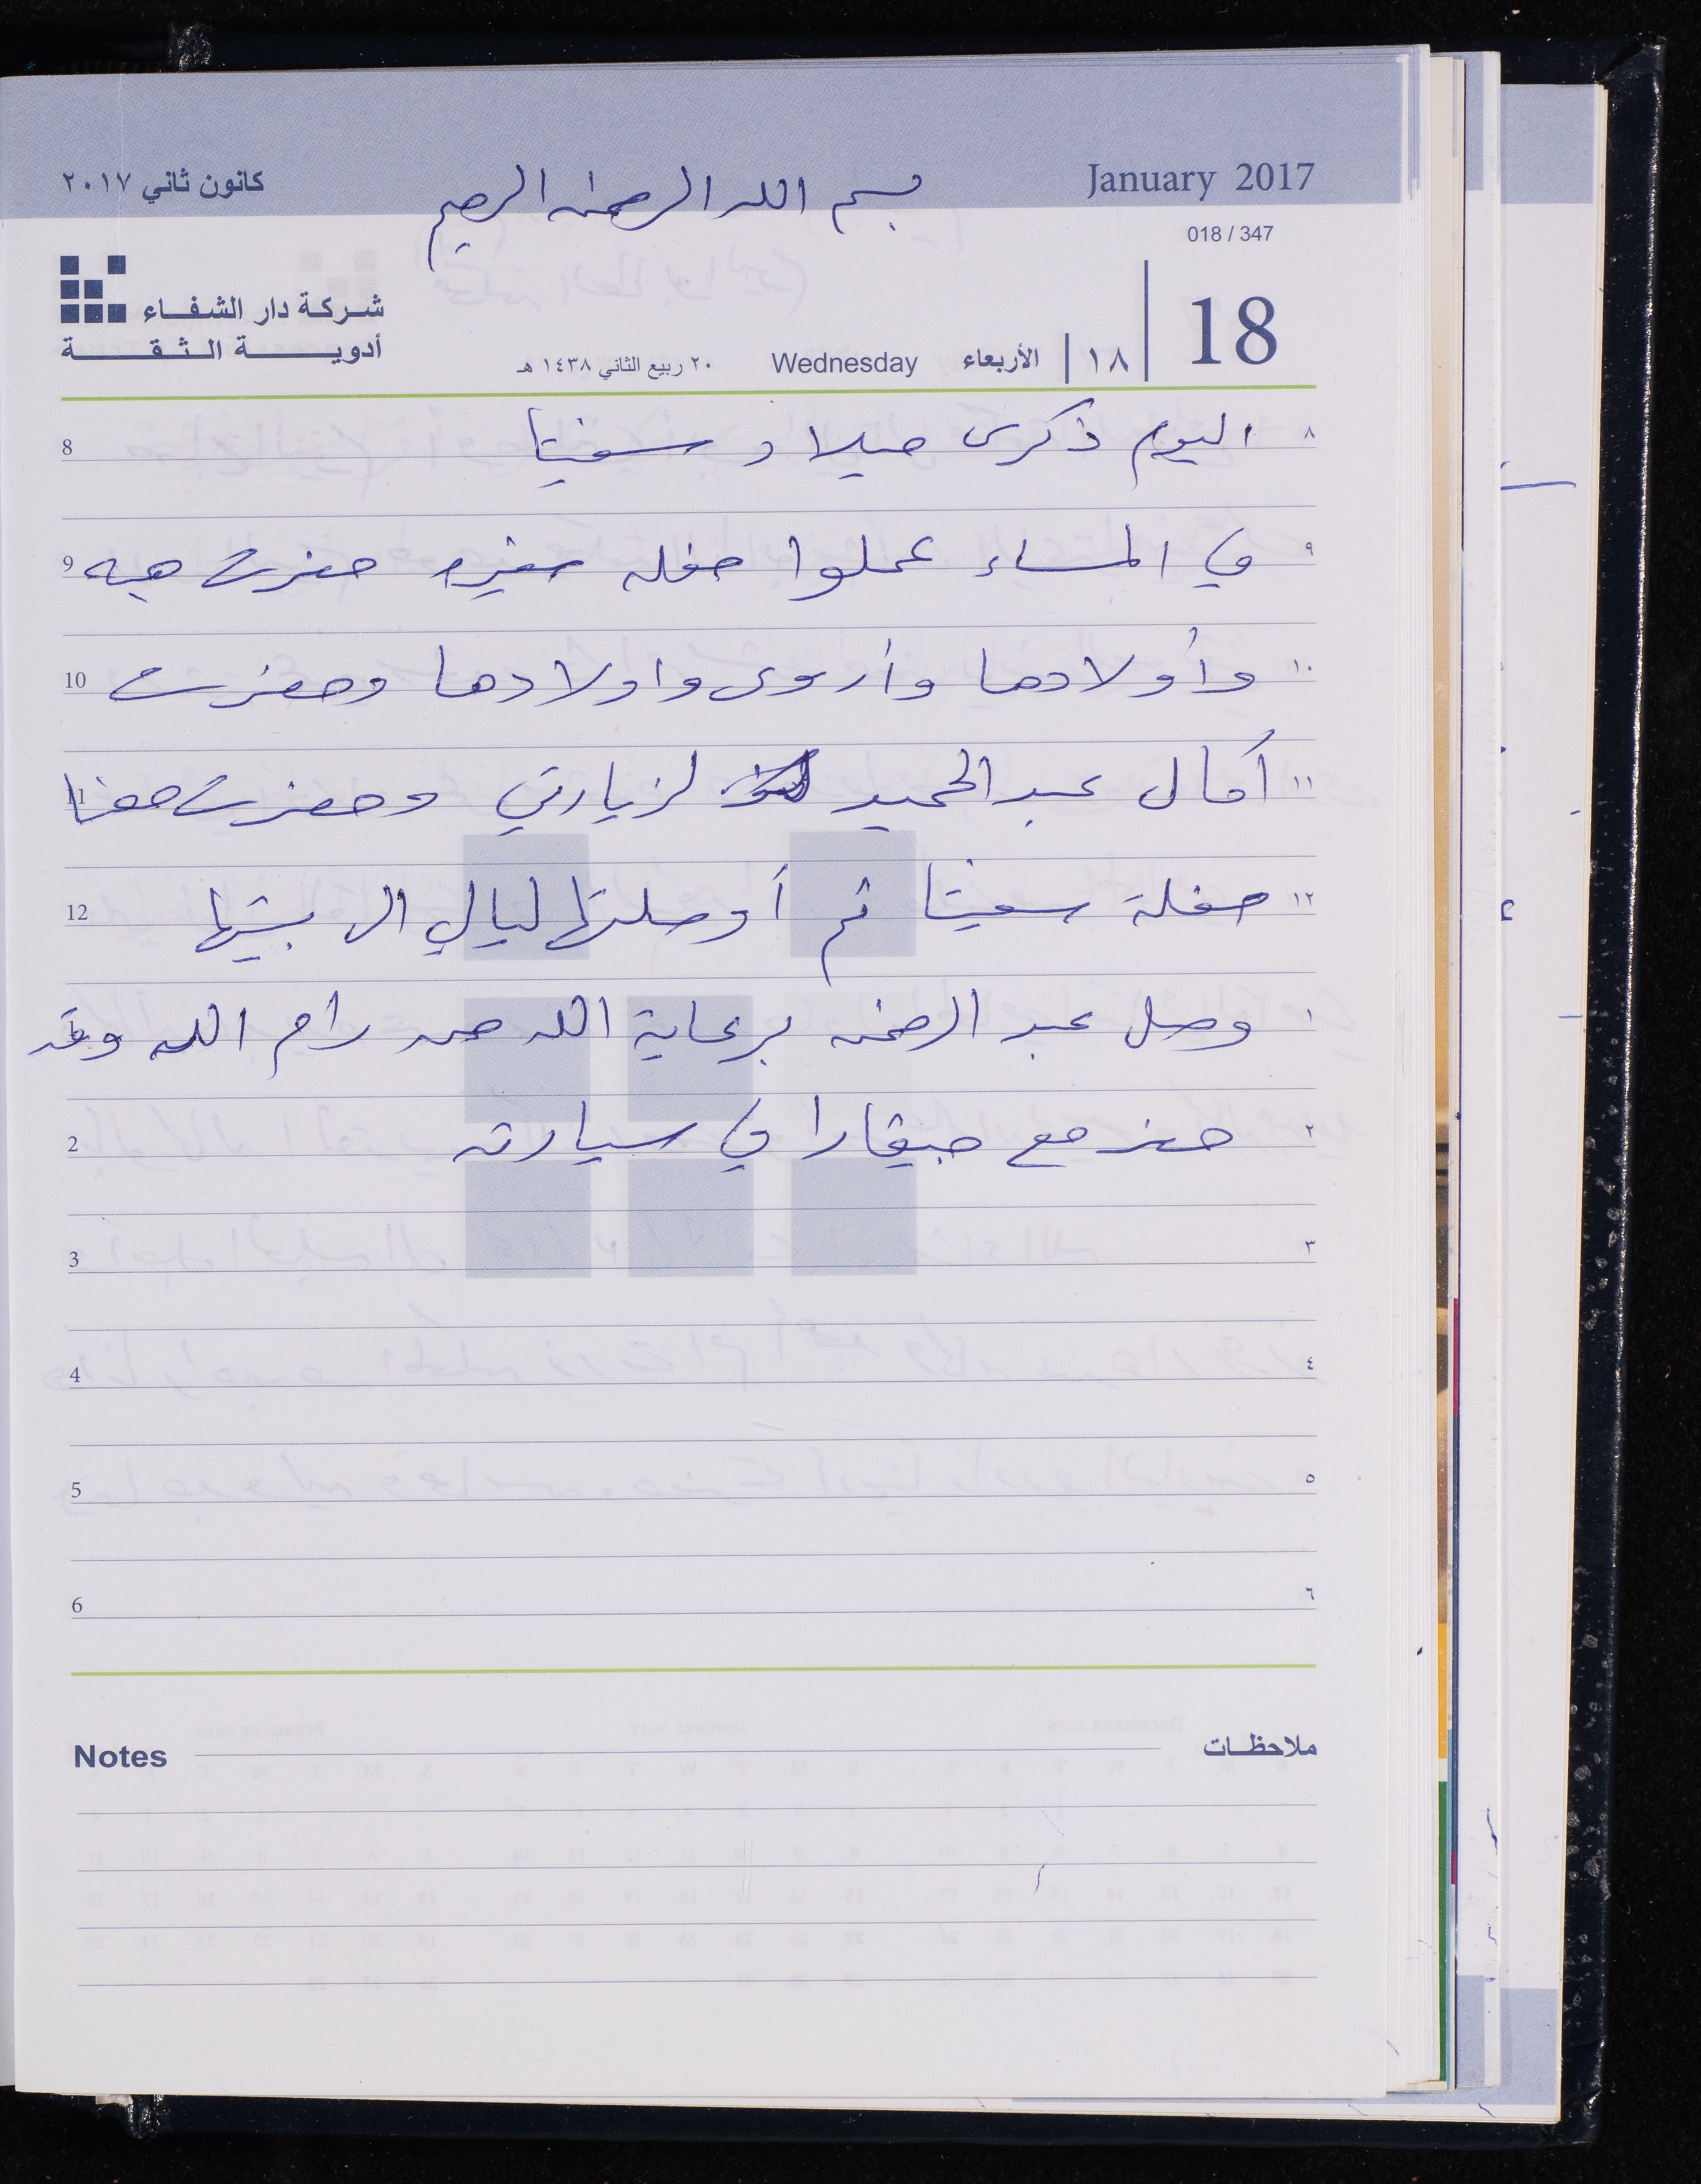 كانون ثاني ٢٠١٧
بسم الله الرحمن الرحيم
January 2017
018 / 347
شركة دار الشفاء
أدوية الثقة
٢٠ ربيع الثاني ١٤٣٨ هـ Wednesday الأربعاء ١٨ 18
٨ اليوم ذكرى ميلاد سفيتا 8
٩ في المساء عملوا حفله صغيره حضرت هبه 9
١٠ وأولادها وأروى واولادها وحضرت 10
١١ أمال عبد الحميد لزيارتي وحضرت معنا 11
١٢ حفلة سفيتا ثم أوصلتها ليالي الى بيتها 12
١ وصل عبد الرحمن برعاية الله من رام الله وقد 1
٢ حضر مع جيفارا في سيارته 2
٣ 3
٤ 4
٥ 5
٦ 6
Notes ملاحظات